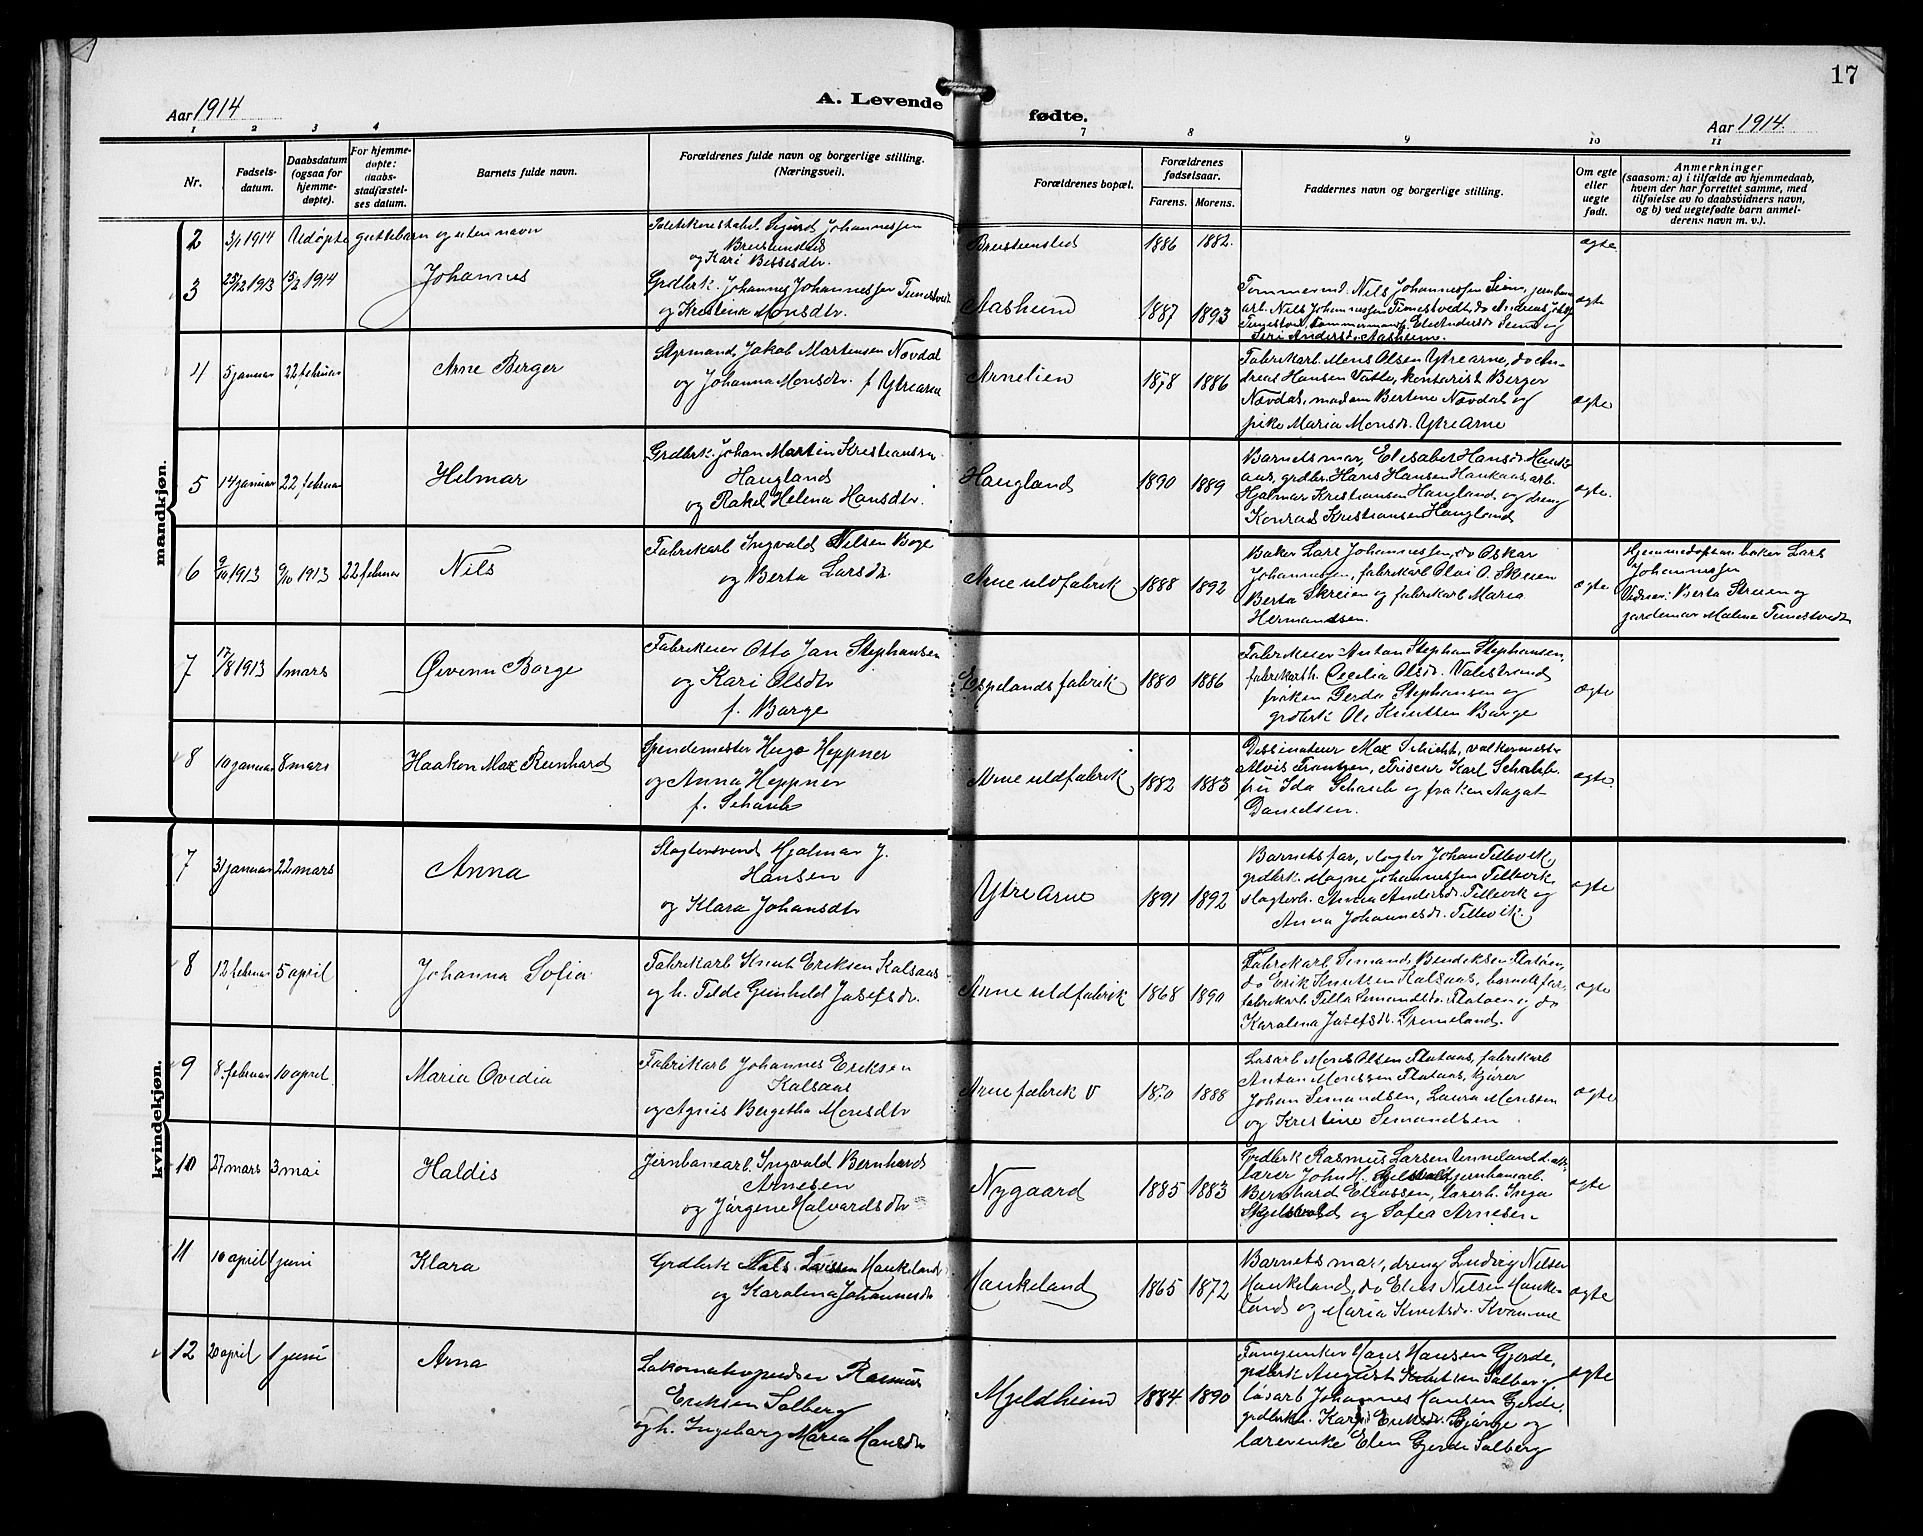 17
Aar 1914
A. Levende
fødte.
Aar 1914.
1 2 3 4 7 8 9 10 11
Nr.
Fødsels-
datum.
Daabsdatum
(ogsaa for
hjemme-
døpte).
For hjemme-
døpte:
daabs-
stadfæstel-
ses datum.
Barnets fulde navn.
Forældrenes fulde navn og borgerlige stilling.
(Næringsvei).
Forældrenes bopæl.
Forældrenes
fødselsaar.
Farens. Morens.
Faddernes navn og borgerlige stilling.
Om egte
eller
uegte
født.
Anmerkninger
(saasom: a) i tilfælde av hjemmedaab,
hvem der har forrettet samme, med
tilføielse av to daabsvidners navn,
og b) ved uegtefødte barn anmel-
derens navn m. v.).
mandkjøn.
2 3/1 1914 Udøpte guttebarn og uten navn
Sigurd Johannessen
og Kari
1886 1882. ægte.
3 25/12 1913 15/2 1914 Johannes
Grdbrk. Johannes Johannessen
og Kristina Monsdtr.
Aasheim 1887 1893
Nils Johannessen
ægte
4 5 januar 22 februar Arne Berger
Styrmand Jakob Martensen Novdal
og Johanna Monsdtr. f Ytrearne
Arnelien 1878 1886
Fabrikarb. Mons Olsen Ytrearne, do An-
dreas Hansen Vatle, kontorist Berger
Novdal, madam Bertine Novdal og
pike Maria Monsdr. Ytre Arne
ægte
5 14 januar 22 februar Hilmar
Grdbrk. Johan Martin Kristiansen
Haugland
og Rakel Helena Hansdtr.
Haugland 1890 1889
Barnets mor, Elisabet Hansdr Hauk-
aas, grdbr. Hans Hansen Haukaas, arb.
Hjalmar Kristiansen Haugland og dreng
Konrad Kristiansen Haugland
ægte.
6 9/10 1913 9/10 1913 22 februar Nils
Fabrikarb Ingvald Nilsen Boge
og Berta Larsdtr.
Arne uldfabrik 1888 1892
Baker Lars Johannessen, do Oskar
Johannessen, fabrikarb Olai O. Skreien
Berta Skreien og fabrikarb Maria
Hermandsen.
ægte
Hjemmedøpt av baker Lars
Johannessen
Vidner: Berta Skreien og
jordemor Malene
7 17/8 1913 1 mars Øivenn Borge
Fabrikeier Otto Jan Stephansen
og Kari Olsdtr
f. Borge
Espelands fabrik 1880 1886
Fabrikeier Anton Stephan Stephansen,
Cecilia Olsdr. Valestrand
frøken Gerda Stephansen og
grdbrk Ole Knutsen Borge
ægte
8 10 januar 8 mars Haakon Max Reinhard
Spindemester Hugo Heppner
og Anna Heppner
f. Schaub
Arne uldfabrik 1882 1883
Dessinateur Max Schicht, valkermester
Alois Frantzen, Friseur Karl Schaub
fru Ida Schaub og frøken Aagot
Danielsen.
ægte.
kvindekjøn.
7 31 januar 22 mars Anna
Slagtersvend Hjalmar J.
Hansen
og Klara Johansdtr
Ytre Arne 1891 1892
Barnets far, slagter Johan Tellevik,
grdbrk. Magne Johannessen Tellevik,
slagterh. Anna Andersdr. Tellevik og
Anna Johannesdr. Tellevik.
ægte
8 12 februar 5 april Johanna Sofia
Fabrikarb Knut Eriksen Kalsaas
og h. Tilde Gunhild Josefsdr.
Arne uldfabrik 1868 1890
Fabrikarb Simand Bendiksen Flatøen,
do Erik Knutsen Kalsaas, barnets far,
fabrikarb. Tilla Simandsdr. Flatøen og do
Karolina Josefsdr. Grimeland.
ægte
9 8. februar 10 april Maria Ovidia
Fabrikarb Johannes Eriksen
Kalsaas
og Agnis Bergitha Monsdtr
Arne fabrik V 1888
Løsarb Mons Olsen Flataas, fabrikarb
Anton Monssen Flataas, kjører
Johan Simandsen, Laura Monssen
og Kristine Simandsen.
ægte
10 27 mars 3 mai Haldis
Jernbanearb. Ingvald Bernhard
Arnesen
og Jørgine Halvardsdtr
Nygaard 1885 1883
Grdbrk Rasmus Larsen Unneland
lærer John H.
Bernhard Eliassen, lærerh. Inga
og Sofia Arnesen
ægte
11 10 april 1 juni Klara
Grdbrk Nils Haukeland
og Karolina Johannesdtr
Haukeland 1865 1872
Barnets mor, dreng Ludvig Nilsen
Haukeland, do Elias Nilsen Hauke-
land og Maria Knutsdr. Kvamme
ægte
12 20 april 1 juni Arna
Lokomotivpudser Rasmus
Eriksen Solberg
og h. Ingeborg Maria Hansdtr
Mjeldheim 1884 1890
Hans Hansen Gjerde,
grdbrk August Solberg
løsarb Johannes Hansen Gjerde,
grdbrkh. Kari Eriksdr. Bjørge og
lærerenke Elen Gjerde Solberg
ægte